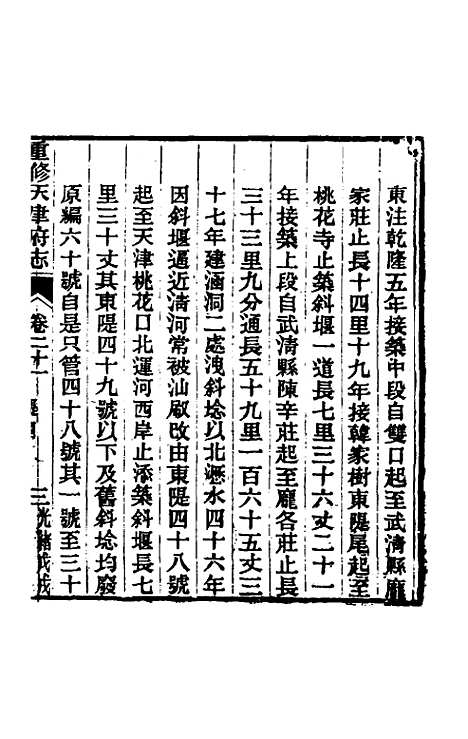 東注乾隆五年接築中段自雙口起至武清縣龐
家莊止長十四里十九年接韓家樹東隄尾起至
桃花寺止築斜堰一道長七里三十六丈二十一
年接築上段自武清縣陳辛莊起至龐各莊止長
三十三里九分通長五十九里一百六十五丈三
十七年建涵洞二處洩斜埝以北瀝水四十六年
因斜堰逼近清河常被汕㕞改由東隄四十八號
起至天津桃花口北運河西岸止添築斜堰長七
里三十丈其東隄四十九號以下及舊斜埝均廢
原編六十號自是只管四十八號其一號至三十
重修天津府志
卷二十一
三
光緒戊戌